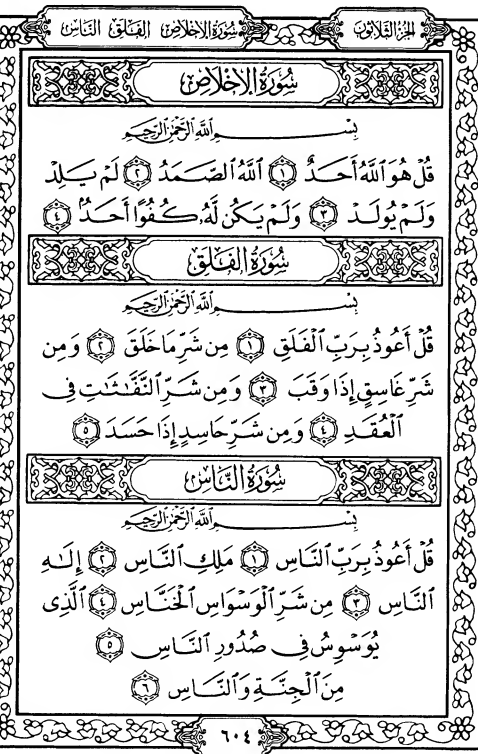 الجزء الثلاثون
سورة الإخلاص الفلق الناس
سُورَةُ الإِخْلَاصِ
بِسْمِ ٱللَّهِ ٱلرَّحْمَٰنِ ٱلرَّحِيمِ
قُلْ هُوَ ٱللَّهُ أَحَدٌ ١ ٱللَّهُ ٱلصَّمَدُ ٢ لَمْ يَلِدْ
وَلَمْ يُولَدْ ٣ وَلَمْ يَكُن لَّهُۥ كُفُوًا أَحَدٌۢ ٤
سُورَةُ الْفَلَقِ
بِسْمِ ٱللَّهِ ٱلرَّحْمَٰنِ ٱلرَّحِيمِ
قُلْ أَعُوذُ بِرَبِّ ٱلْفَلَقِ ١ مِن شَرِّ مَا خَلَقَ ٢ وَمِن
شَرِّ غَاسِقٍ إِذَا وَقَبَ ٣ وَمِن شَرِّ ٱلنَّفَّـٰثَـٰتِ فِى
ٱلْعُقَدِ ٤ وَمِن شَرِّ حَاسِدٍ إِذَا حَسَدَ ٥
سُورَةُ النَّاسِ
بِسْمِ ٱللَّهِ ٱلرَّحْمَٰنِ ٱلرَّحِيمِ
قُلْ أَعُوذُ بِرَبِّ ٱلنَّاسِ ١ مَلِكِ ٱلنَّاسِ ٢ إِلَـٰهِ
ٱلنَّاسِ ٣ مِن شَرِّ ٱلْوَسْوَاسِ ٱلْخَنَّاسِ ٤ ٱلَّذِى
يُوَسْوِسُ فِى صُدُورِ ٱلنَّاسِ ٥
مِنَ ٱلْجِنَّةِ وَٱلنَّاسِ ٦
٦٠٤